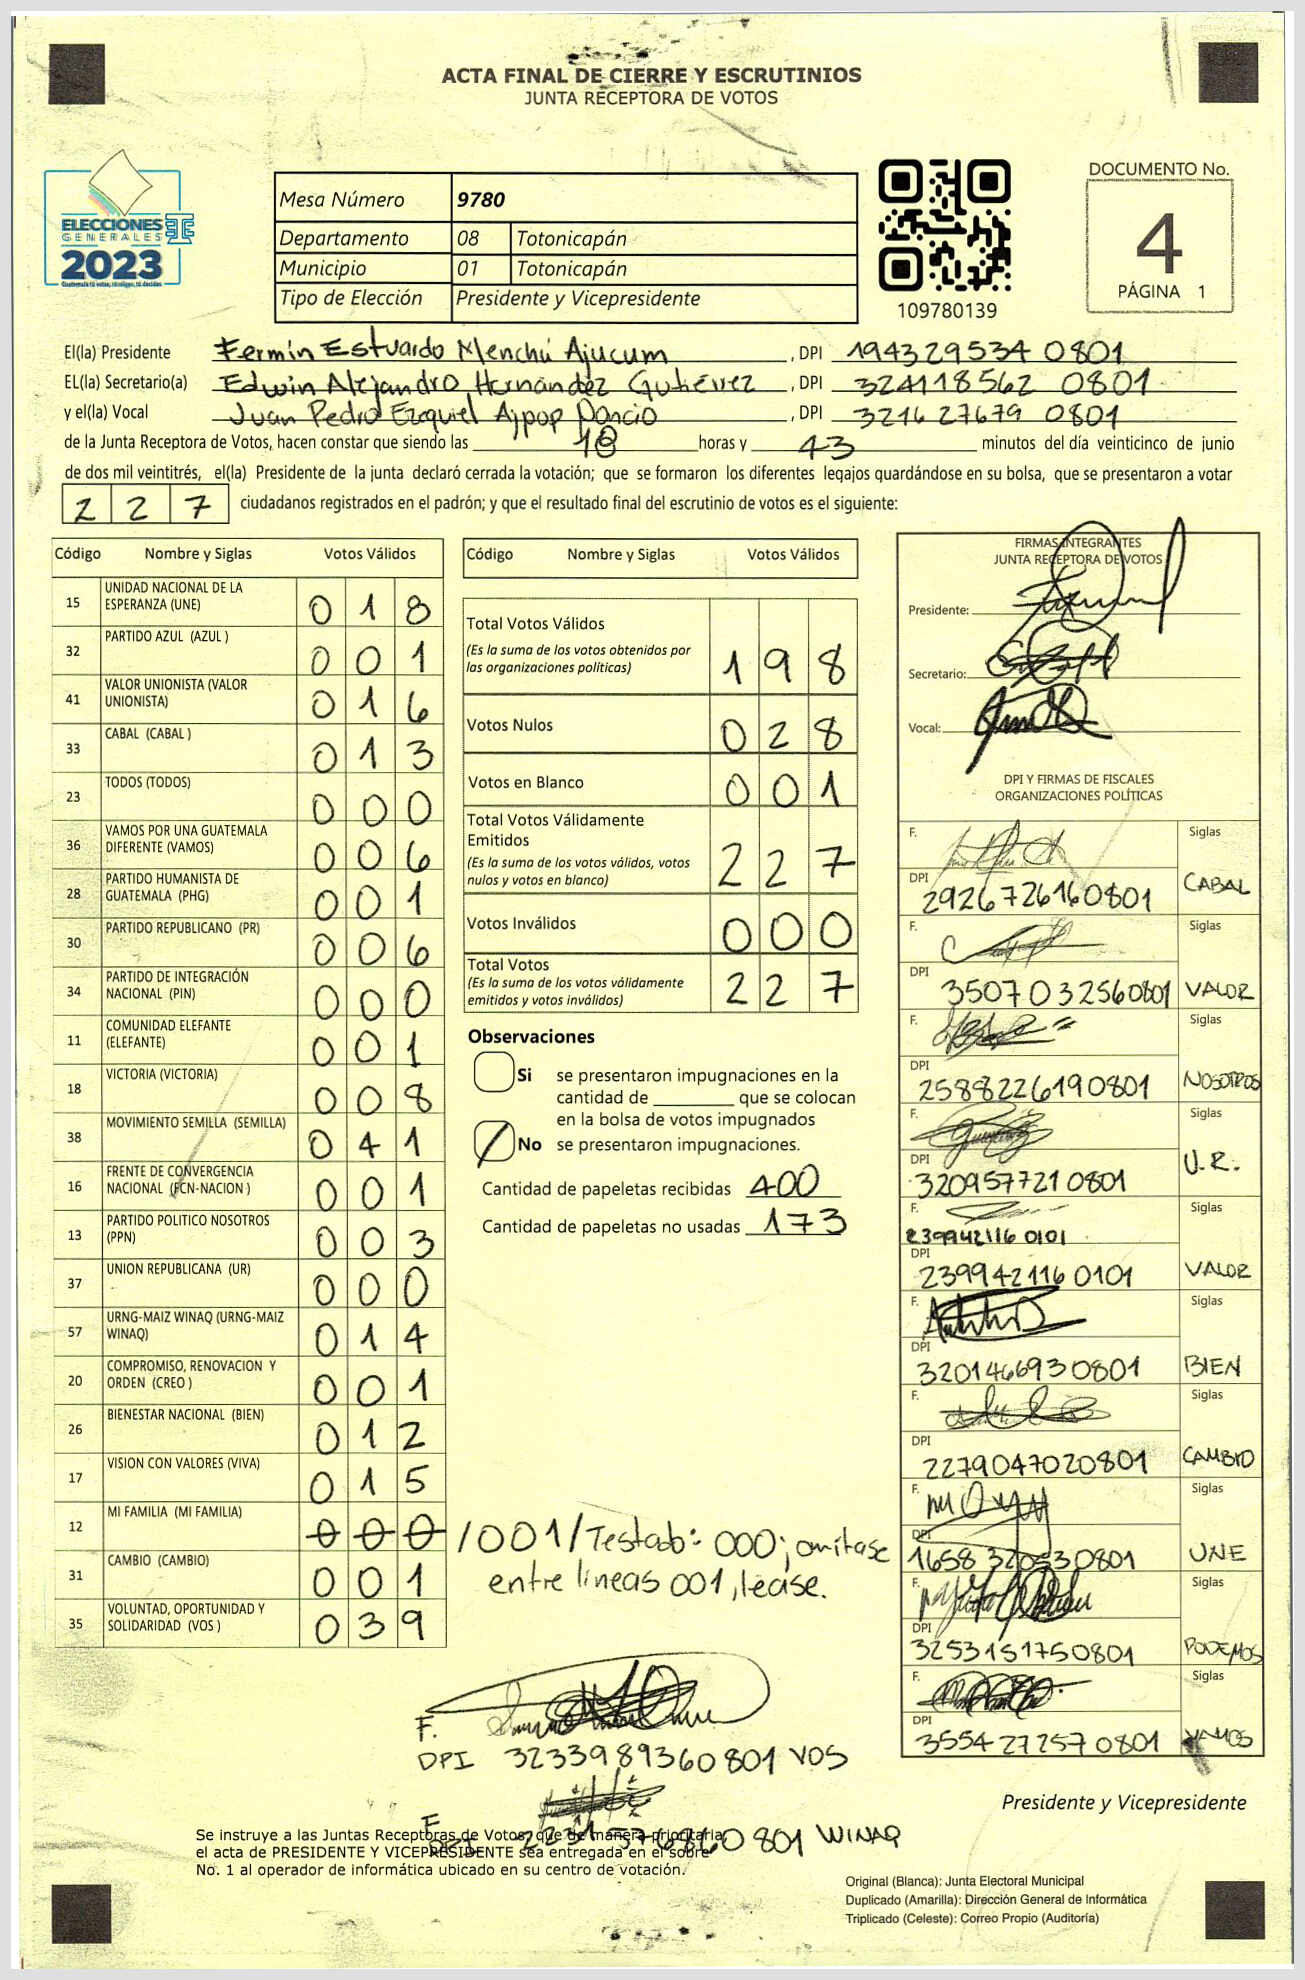 ACTA FINAL DE CIERRE Y ESCRUTINIOS
JUNTA RECEPTORA DE VOTOS
ELECCIONES
GENERALES
2023
Mesa Número 9780
Departamento 08 Totonicapán
Municipio 01 Totonicapán
Tipo de Elección Presidente y Vicepresidente
109780139
DOCUMENTO No.
4
PÁGINA 1
El(la) Presidente Fermín Estuardo Menchú Ajucum, DPI 194329534 0801
EL(la) Secretario(a) Edwin Alejandro Hernández Gutiérrez, DPI 324118562 0801
y el(la) Vocal Juan Pedro Ezequiel Ajpop Poncio, DPI 321627679 0801
de la Junta Receptora de Votos, hacen constar que siendo las 18 horas y 43 minutos del día veinticinco de junio
de dos mil veintitrés, el(la) Presidente de la junta declaró cerrada la votación; que se formaron los diferentes legajos guardándose en su bolsa, que se presentaron a votar
2 2 7 ciudadanos registrados en el padrón; y que el resultado final del escrutinio de votos es el siguiente:
Código Nombre y Siglas Votos Válidos
15 UNIDAD NACIONAL DE LA ESPERANZA (UNE) 0 1 8
32 PARTIDO AZUL (AZUL ) 0 0 1
41 VALOR UNIONISTA (VALOR UNIONISTA) 0 1 6
33 CABAL (CABAL ) 0 1 3
23 TODOS (TODOS) 0 0 0
36 VAMOS POR UNA GUATEMALA DIFERENTE (VAMOS) 0 0 6
28 PARTIDO HUMANISTA DE GUATEMALA (PHG) 0 0 1
30 PARTIDO REPUBLICANO (PR) 0 0 6
34 PARTIDO DE INTEGRACIÓN NACIONAL (PIN) 0 0 0
11 COMUNIDAD ELEFANTE (ELEFANTE) 0 0 1
18 VICTORIA (VICTORIA) 0 0 8
38 MOVIMIENTO SEMILLA (SEMILLA) 0 4 1
16 FRENTE DE CONVERGENCIA NACIONAL (FCN-NACION ) 0 0 1
13 PARTIDO POLITICO NOSOTROS (PPN) 0 0 3
37 UNION REPUBLICANA (UR) 0 0 0
57 URNG-MAIZ WINAQ (URNG-MAIZ WINAQ) 0 1 4
20 COMPROMISO, RENOVACION Y ORDEN (CREO ) 0 0 1
26 BIENESTAR NACIONAL (BIEN) 0 1 2
17 VISION CON VALORES (VIVA) 0 1 5
12 MI FAMILIA (MI FAMILIA) 0 0 0 /001/Testado: 000; omitase
entre lineas 001, lease.
31 CAMBIO (CAMBIO) 0 0 1
35 VOLUNTAD, OPORTUNIDAD Y SOLIDARIDAD (VOS ) 0 3 9
Código Nombre y Siglas Votos Válidos
Total Votos Válidos 1 9 8
(Es la suma de los votos obtenidos por
las organizaciones políticas)
Votos Nulos 0 2 8
Votos en Blanco 0 0 1
Total Votos Válidamente
Emitidos 2 2 7
(Es la suma de los votos válidos, votos
nulos y votos en blanco)
Votos Inválidos 0 0 0
Total Votos 2 2 7
(Es la suma de los votos válidamente
emitidos y votos inválidos)
Observaciones
Si se presentaron impugnaciones en la
cantidad de ________ que se colocan
en la bolsa de votos impugnados
No se presentaron impugnaciones.
Cantidad de papeletas recibidas 400
Cantidad de papeletas no usadas 173
FIRMAS INTEGRANTES
JUNTA RECEPTORA DE VOTOS
Presidente:
Secretario:
Vocal:
DPI Y FIRMAS DE FISCALES
ORGANIZACIONES POLÍTICAS
F. Siglas
DPI 2926726160801 CABAL
F. Siglas
DPI 3507032560801 VALOR
F. Siglas
DPI 2588226190801 NOSOTROS
F. Siglas
DPI 3209577210801 U.R.
F. Siglas
239942116 0101
DPI 239942116 0101 VALOR
F. Siglas
DPI 3201466930801 BIEN
F. Siglas
DPI 2279047020801 CAMBIO
F. Siglas
DPI 1658320530801 UNE
F. Siglas
DPI 3253151750801 PODEMOS
F. Siglas
DPI 3554272570801 VAMOS
F.
DPI 3233989360801 VOS
F
DPI 2231576860801 WINAQ
Presidente y Vicepresidente
Se instruye a las Juntas Receptoras de Votos, que de manera prioritaria
el acta de PRESIDENTE Y VICEPRESIDENTE sea entregada en el sobre
No. 1 al operador de informática ubicado en su centro de votación.
Original (Blanca): Junta Electoral Municipal
Duplicado (Amarilla): Dirección General de Informática
Triplicado (Celeste): Correo Propio (Auditoría)